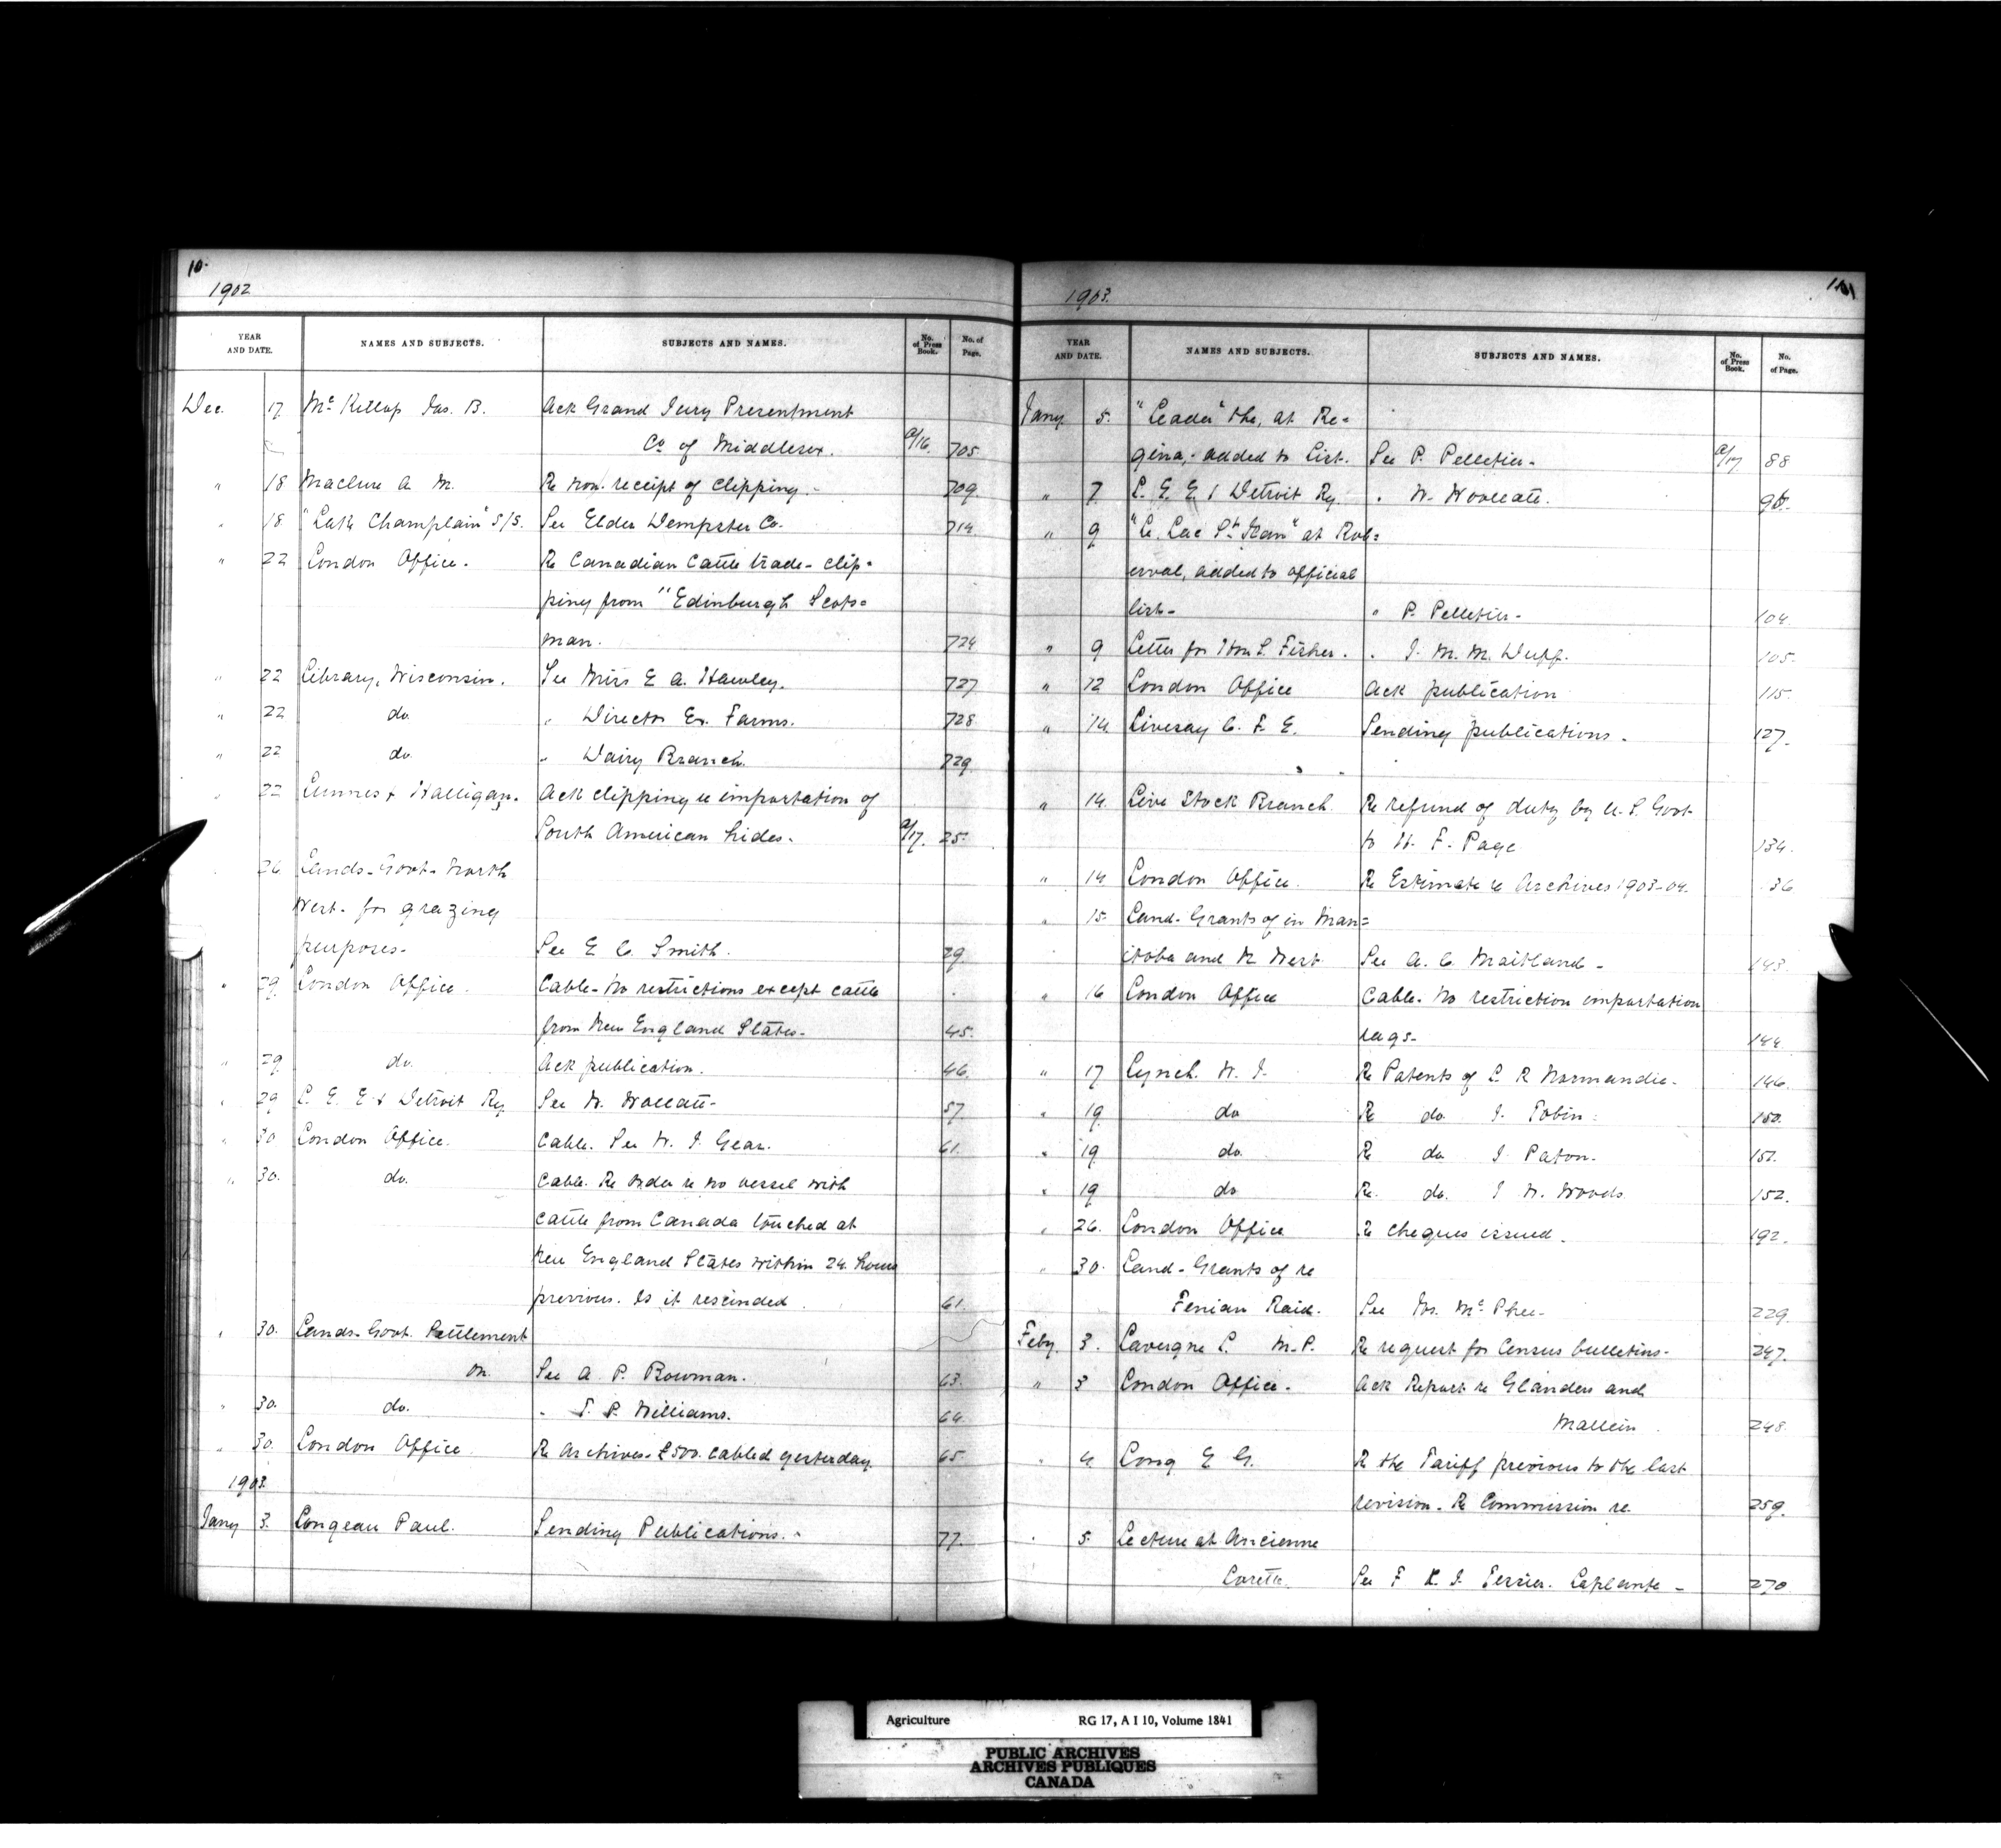 10.
1902
YEAR AND DATE. NAMES AND SUBJECTS. SUBJECTS AND NAMES. No. of Press Book. No. of Page.
Dec. 17 Mc Killop Jas. B. Ack Grand Jury Presentment
Co of Middlesex. a/16. 705.
" 18 Maclure A. M. Re non. receipt of clipping.- 709.
" 18 "Lake Champlain" S/S. See Elder Dempster Co. 714
" 22 London Office. Re Canadian Cattle trade- clip-
ping from "Edinburgh Scots=
man. 724
" 22 Library, Wisconsin. See Miss E A. Hawley. 727
" 22 do. " Director Ex. Farms. 728
" 22 do. " Dairy Branch. 729
" 22 & Halligan. Ack clipping re importation of
South American hides- a/17. 25.
26 Lands-Govt- North
West- for grazing
purposes- See E C. Smith. 29.
" 29. London Office. Cable- No restrictions except cattle
from New England States- 45.
" 29 do. Ack publication. 46.
" 29 L. E. E & Detroit Ry. See W. Woollatt- 57
" 30 London Office. Cable. See W. J. Gear. 61.
" 30. do. Cable. Re order re no vessel with
cattle from Canada touched at
New England States within 24. hours
previous. Is it rescinded. 61.
" 30. Lands-Govt. Settlement
on. See A. P. Bowman. 63.
" 30. do. " T. P. Williams. 64.
" 30. London Office. Re Archives- £500. cabled yesterday. 65.
1903.
Jany 3. Longeau Paul. Sending Publications.- 77.
11
1903.
YEAR AND DATE. NAMES AND SUBJECTS. SUBJECTS AND NAMES. No. of Press Book. No. of Page.
Jany. 5. "Leader" the, at Re=
gina,- added to List. See P. Pelletier- a/17 88
" 7. L. E. E & Detroit Ry. " W. Woollatt.
" 9 "Le Lac St Jean" at Rob=
erval, added to official
list- " P. Pelletier- 104.
" 9 Letter for Wm L. Fisher. " J. M. M. Duff. 105.
" 12 London Office Ack publication 115.
" 14. Livesay C. F. E. Sending publications. 127.
" 14. Live Stock Branch Re refund of duty by U. S. Govt
to W. F. Page 134.
" 14 London Office. Re Estimate re Archives 1903-04. 36
" 15. Land- Grants of in Man=
itoba and N West See A. C. Maitland- 143.
" 16 London Office Cable. No restriction importation
rags- 144
" 17 Lynch. W. J. Re Patents of L. R Normandie. 146.
" 19. do Re do. J. Tobin. 150.
" 19 do Re do J. Paton. 151.
" 19 do Re. do. J W. Woods. 152.
" 26. London Office Re cheques issued. 192.
" 30. Land- Grants of re
Fenian Raid. See Mc Phee- 229.
Feby. 3. Lavergne L. M.P. Re request for Census bulletins- 247.
" 3 London Office- Ack Report re Glanders and
Mallein. 248.
" 4 Long E G. Re the Tariff previous to the last
revision- Re Commission re. 259.
" 5. Lecture at Ancienne
Lorette. See F X. J. Tessier. Laplante- 270
Agriculture RG 17, A I 10, Volume 1841
PUBLIC ARCHIVES
ARCHIVES PUBLIQUES
CANADA